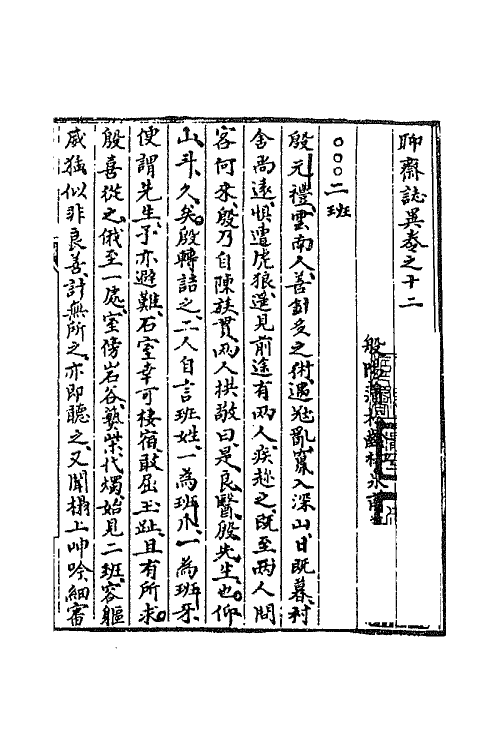 聊齋誌異卷之十二
般陽蒲松齡柳泉
○○○二班
殷元禮雲南人、善針灸之術、遇冦亂、竄入深山、日既暮、村
舍尚遠、惧遭虎狼、遥見前途有兩人、疾趂之、既至、兩人問
客何來、殷乃自陳族貫、兩人拱敬曰、是良醫殷先生也、仰
山斗久矣、殷轉詰之、二人自言班姓、一為班爪、一為班牙、
便謂先生、予亦避難、石室幸可棲宿、敢屈玉趾、且有所求、
殷喜從之、俄至一處、室傍岩谷、爇柴代燭、始見二班容軀
威猛、似非良善、計無所之、亦即聽之、又聞榻上呻吟、細審